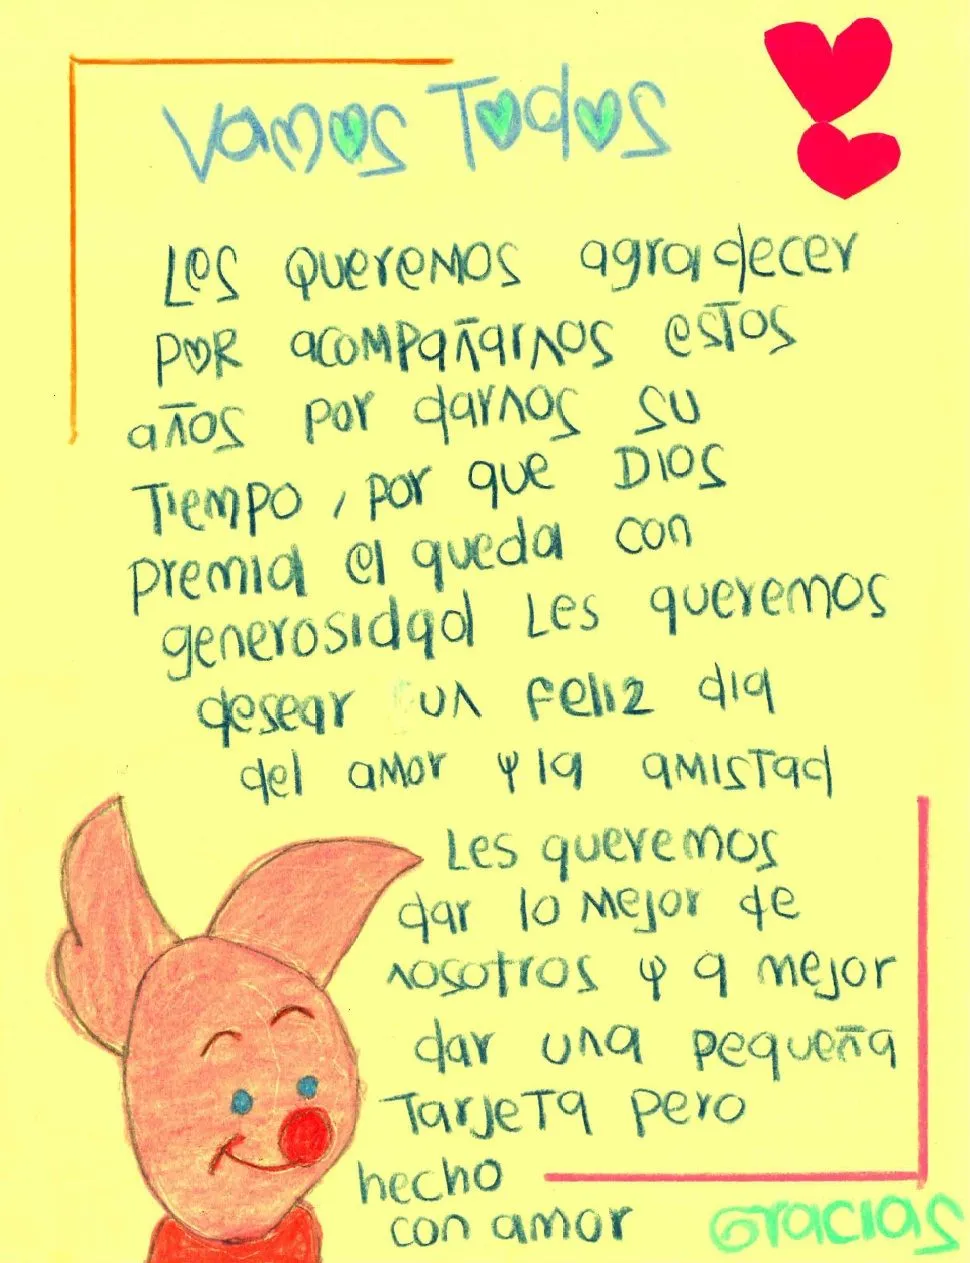 Vamos Todos
Les queremos agradecer
por acompañarnos estos
años por darnos su
Tiempo, por que Dios
premia el queda con
generosidad Les queremos
desear un feliz dia
del amor y la amistad
Les queremos
dar lo mejor de
nosotros y a mejor
dar una pequeña
Tarjeta pero
hecho
con amor
Gracias